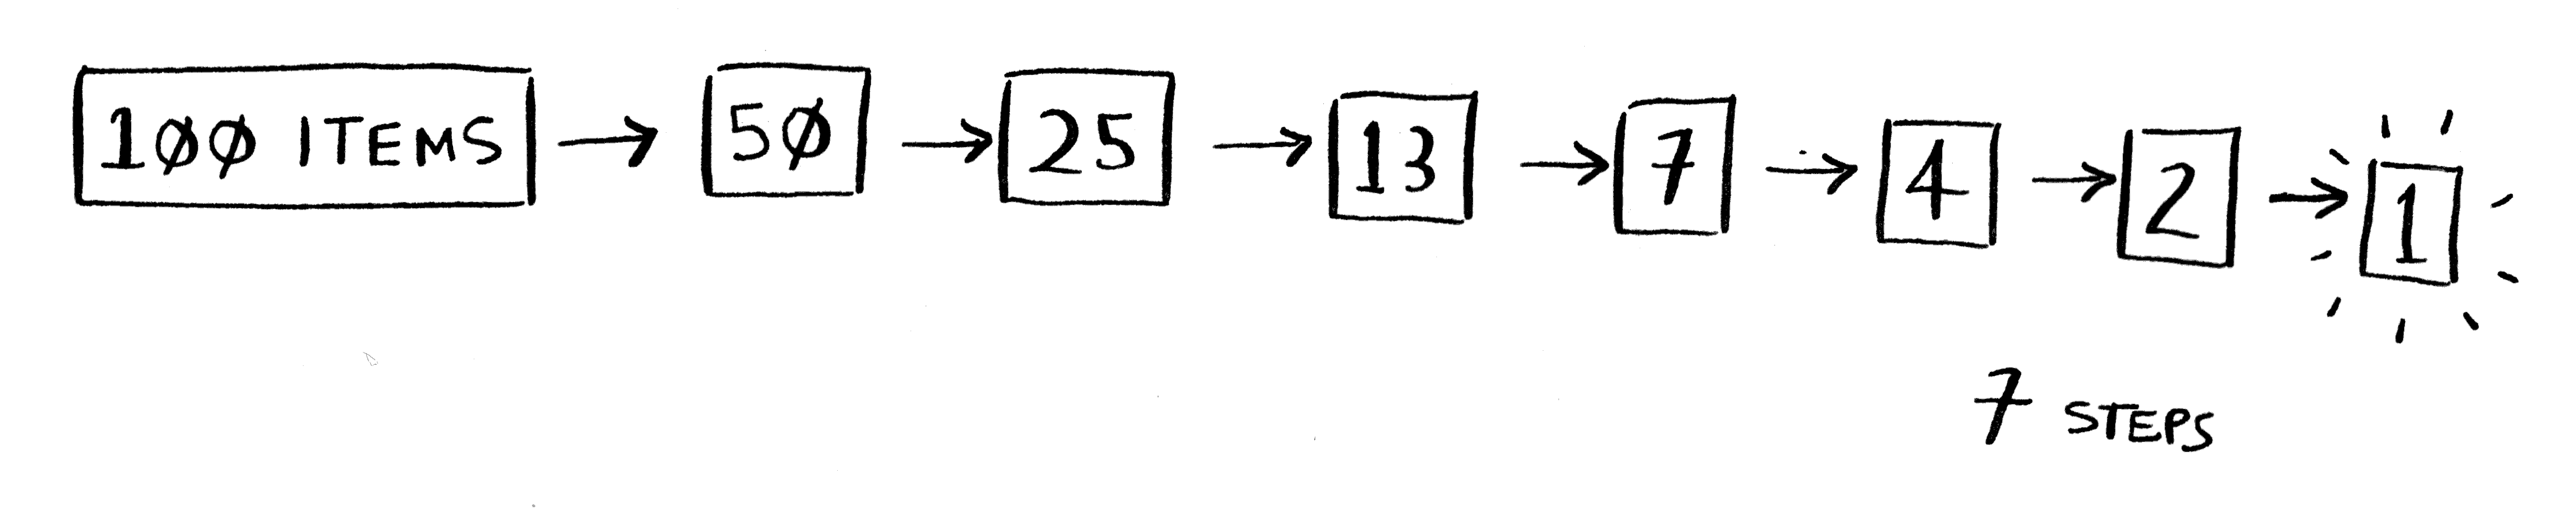 100 ITEMS → 50 → 25 → 13 → 7 → 4 → 2 → 1
7 STEPS